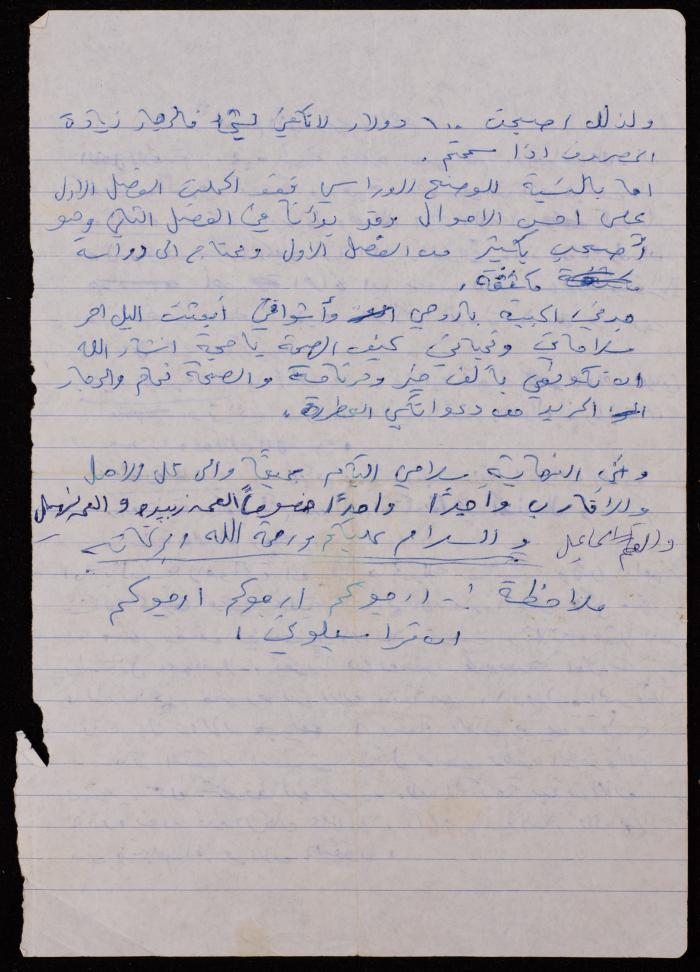 ولذلك اصبحت ٦٠٠ دولار لا تكفي لشيء فالرجاء زيادة
المصروف اذا سمحتم .
اما بالنسبة للوضع الدراسي فقد اكملت الفصل الاول
على احسن الاحوال وقد بدأنا في الفصل الثاني وهو
أصعب بكثير من الفصل الاول ويحتاج الى دراسة
مكثفة .
الحبيبة ياروحي وأشواقي أبعثت اليك احر
سلاماتي وتحياتي كيف الصحة يا انشاء الله
ان تكوني بألف خير وبركامة والصحة تمام والرجاء
المزيد من دعواتكي العطرة .
وفي النهاية سلامي اليكم جميعًا والى كل والاهل
والاقارب واحدًا واحدًا خصوصاً العمه زبيده و العمه
والعم اسماعيل و السلام عليكم ورحمة الله وبركاته
ملاحظة :- ارجوكم ارجوكم ارجوكم
ان تراسلوني !